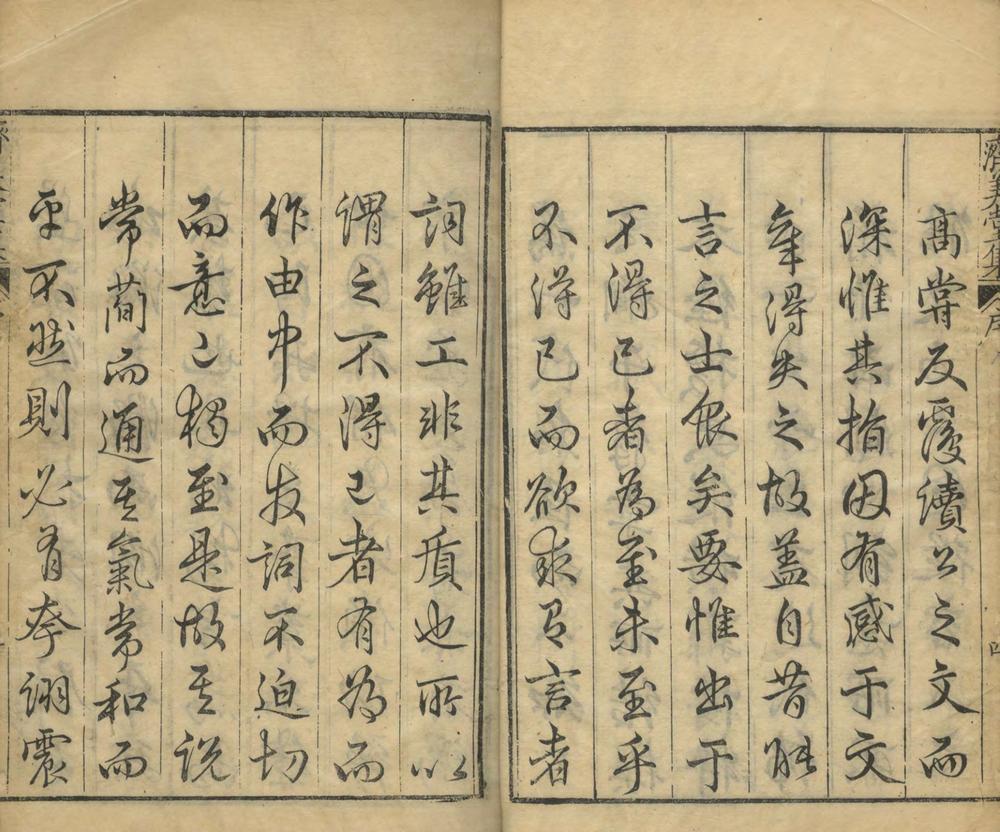 高嘗反覆讀公之文而
深惟其指因有感于文
章得失之故蓋自昔能
言之士眾矣要惟出于
不得已者為至未至乎
不得已而欲求為言者
詞雖工非其質也所以
謂之不得已者有為而
作由中而發詞不迫切
而意已獨至是故其說
常簡而通其氣常和而
平不然則必有夸詡震